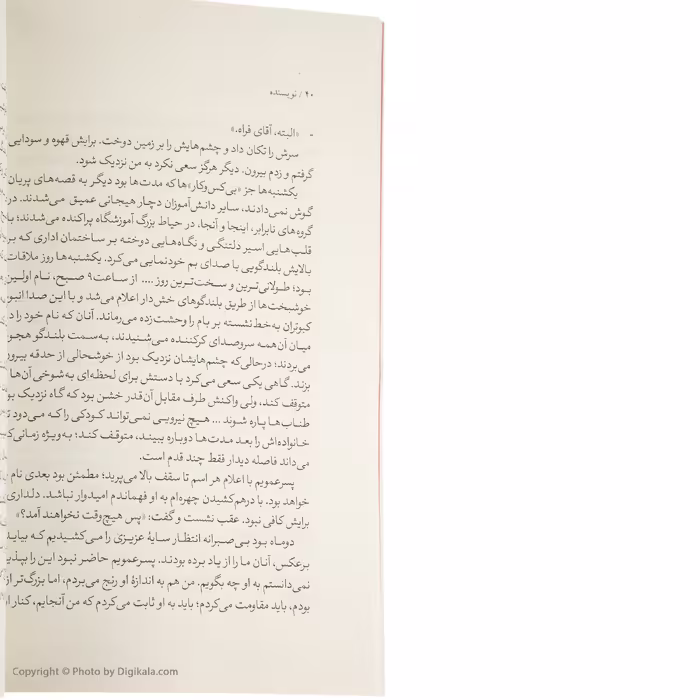 ۴۰ / نویسنده
- «البته، آقای فراه.»
سرش را تکان داد و چشم‌هایش را بر زمین دوخت. برایش قهوه و سودایی
گرفتم و زدم بیرون. دیگر هرگز سعی نکرد به من نزدیک شود.
یکشنبه‌ها جز «بی‌کس‌وکار»ها که مدت‌ها بود دیگر به قصه‌های پریان
گوش نمی‌دادند، سایر دانش‌آموزان دچار هیجانی عمیق می‌شدند. در
گروه‌های نابرابر، اینجا و آنجا، در حیاط بزرگ آموزشگاه پراکنده می‌شدند؛ با
قلب‌هایی اسیر دلتنگی و نگاه‌هایی دوخته بر ساختمان اداری که بر
بالایش بلندگویی با صدای بم خودنمایی می‌کرد. یکشنبه‌ها روز ملاقات
بود؛ طولانی‌ترین و سخت‌ترین روز .... از ساعت ۹ صبح، نام اولین
خوشبخت‌ها از طریق بلندگوهای خش‌دار اعلام می‌شد و با این صدا انبوه
کبوتران به‌خط‌نشسته بر بام را وحشت‌زده می‌رماند. آنان که نام خود را در
میان آن‌همه سروصدای کرکننده می‌شنیدند، به‌سمت بلندگو هجوم
می‌بردند؛ درحالی‌که چشم‌هایشان نزدیک بود از خوشحالی از حدقه بیرون
بزند. گاهی یکی سعی می‌کرد با دستش برای لحظه‌ای به‌شوخی آن‌ها
متوقف کند، ولی واکنش طرف مقابل آن‌قدر خشن بود که گاه نزدیک بود
طناب‌ها پاره شوند ... هیچ نیرویی نمی‌تواند کودکی را که می‌دود
خانواده‌اش را بعد مدت‌ها دوباره ببیند، متوقف کند؛ به‌ویژه زمانی‌که
می‌داند فاصله دیدار فقط چند قدم است.
پسرعمویم با اعلام هر اسم تا سقف بالا می‌پرید؛ مطمئن بود بعدی نام
خواهد بود. با درهم‌کشیدن چهره‌ام به او فهماندم امیدوار نباشد. دلداری
برایش کافی نبود. عقب نشست و گفت: «پس هیچ‌وقت نخواهند آمد؟»
دوماه بود بی‌صبرانه انتظار سایهٔ عزیزی را می‌کشیدیم که بیاید
برعکس، آنان ما را از یاد برده بودند. پسرعمویم حاضر نبود این را بپذیرد
نمی‌دانستم به او چه بگویم. من هم به اندازهٔ او رنج می‌بردم، اما بزرگ‌تر از
بودم، باید مقاومت می‌کردم؛ باید به او ثابت می‌کردم که من آنجایم، کنار او
Copyright © Photo by Digikala.com